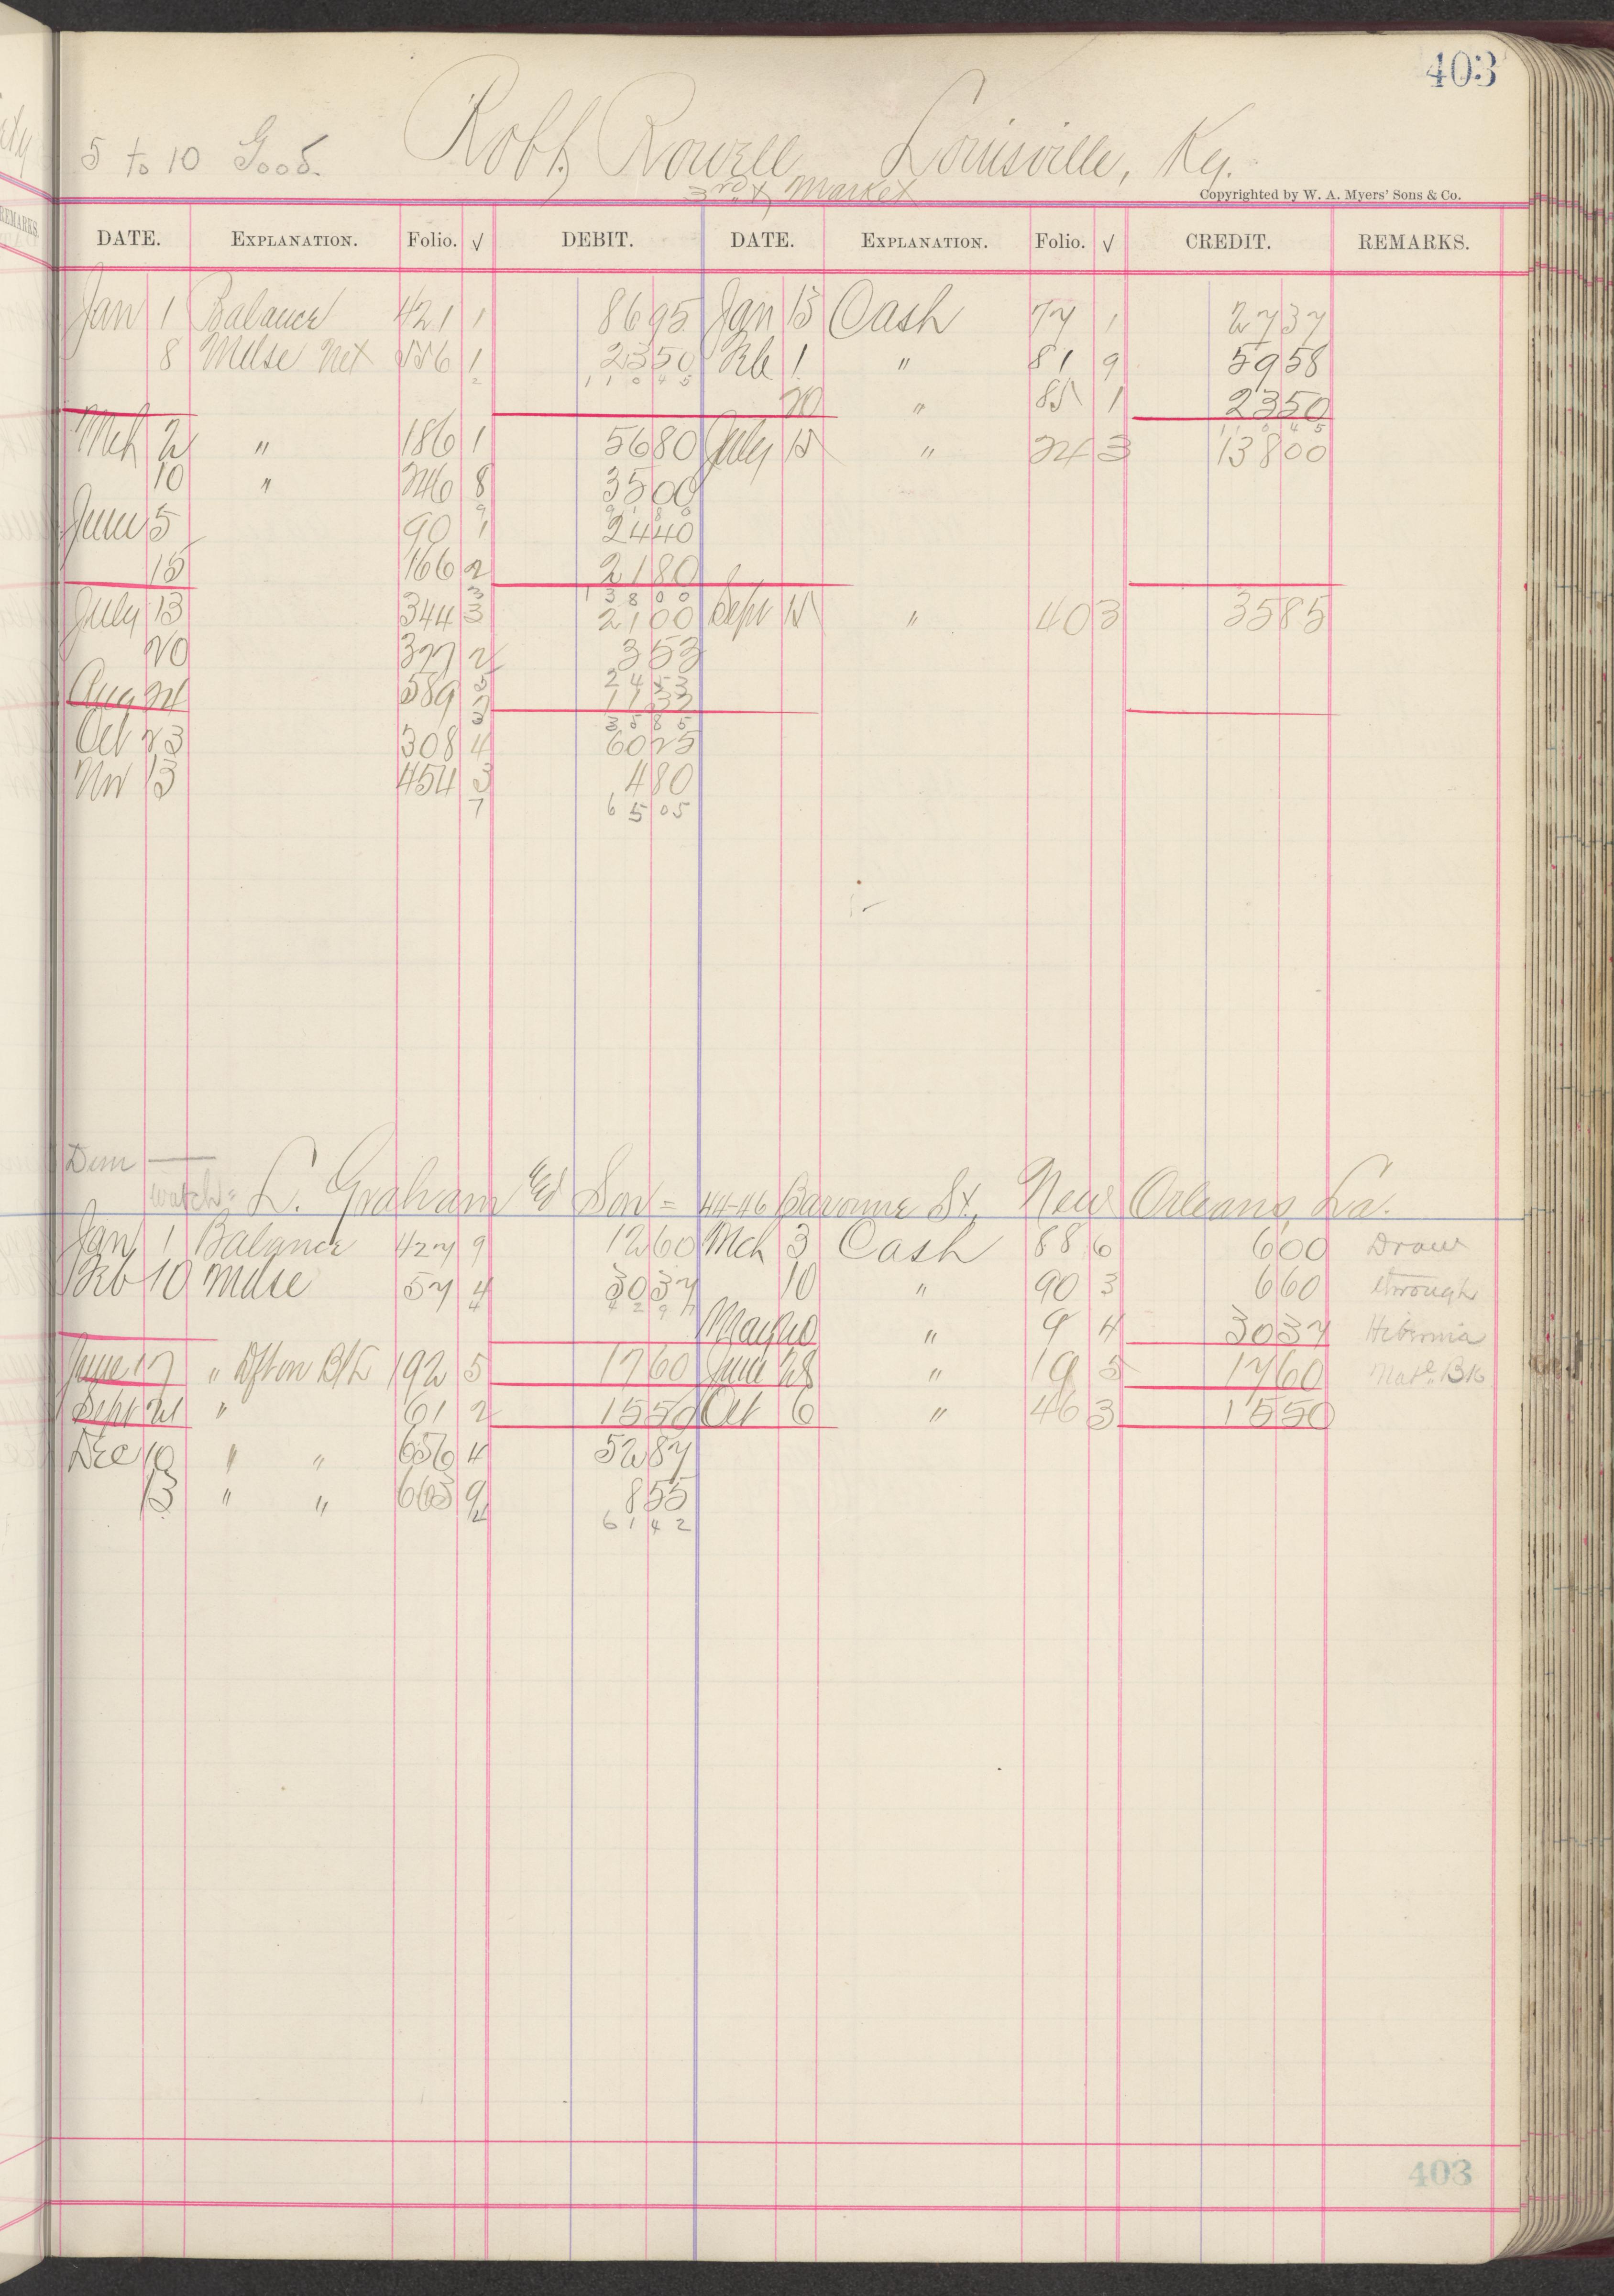 403
5 to 10 Good. Robt Rowell Louisville, Ky.
3rd & Market
Copyrighted by W. A. Myers' Sons & Co.
DATE. EXPLANATION. Folio. √ DEBIT. DATE. EXPLANATION. Folio. √ CREDIT. REMARKS.
Jan 1 Balance 421 1 86 95 Jan 13 Cash 77 1 27 37
8 Mdse Net 1 23 50 Feb 1 " 81 9 59 58
2 110 45
20 " 85 1 23 50
110 45
Mch 2 " 186 1 56 80 July 15 " 24 3 138 00
10 " 246 8 35 00
9 91 80
June 5 90 1 24 40
15 166 2 21 80
3 138 00
July 13 344 3 21 00 Sept 15 " 40 3 35 85
20 377 2 3 53
24 53
Aug 24 589 11 32
35 85
Oct 23 308 4 60 25
Nov 13 454 3 4 80
7 65 05
Dun
watch = L. Graham & Son = 44-46 Baronne St, New Orleans, La.
Jan 1 Balance 427 9 12 60 Mch 3 Cash 88 6 6 00 Draw
Feb 10 Mdse 57 4 30 37 10 " 90 3 6 60 through
4 42 97
May 20 " 9 4 30 37 Hibernia
June 17 " 192 5 17 60 June 28 " 19 5 17 60 Natl. Bk
Sept 21 " 61 2 15 50 Oct 6 " 46 3 15 50
Dec 10 " " 656 4 52 87
13 " " 663 9 8 55
61 42
403